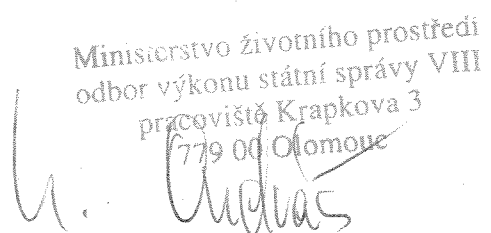 Ministerstvo životního prostředí
odbor výkonu státní správy VIII
pracoviště Krapkova 3
779 00 Olomouc